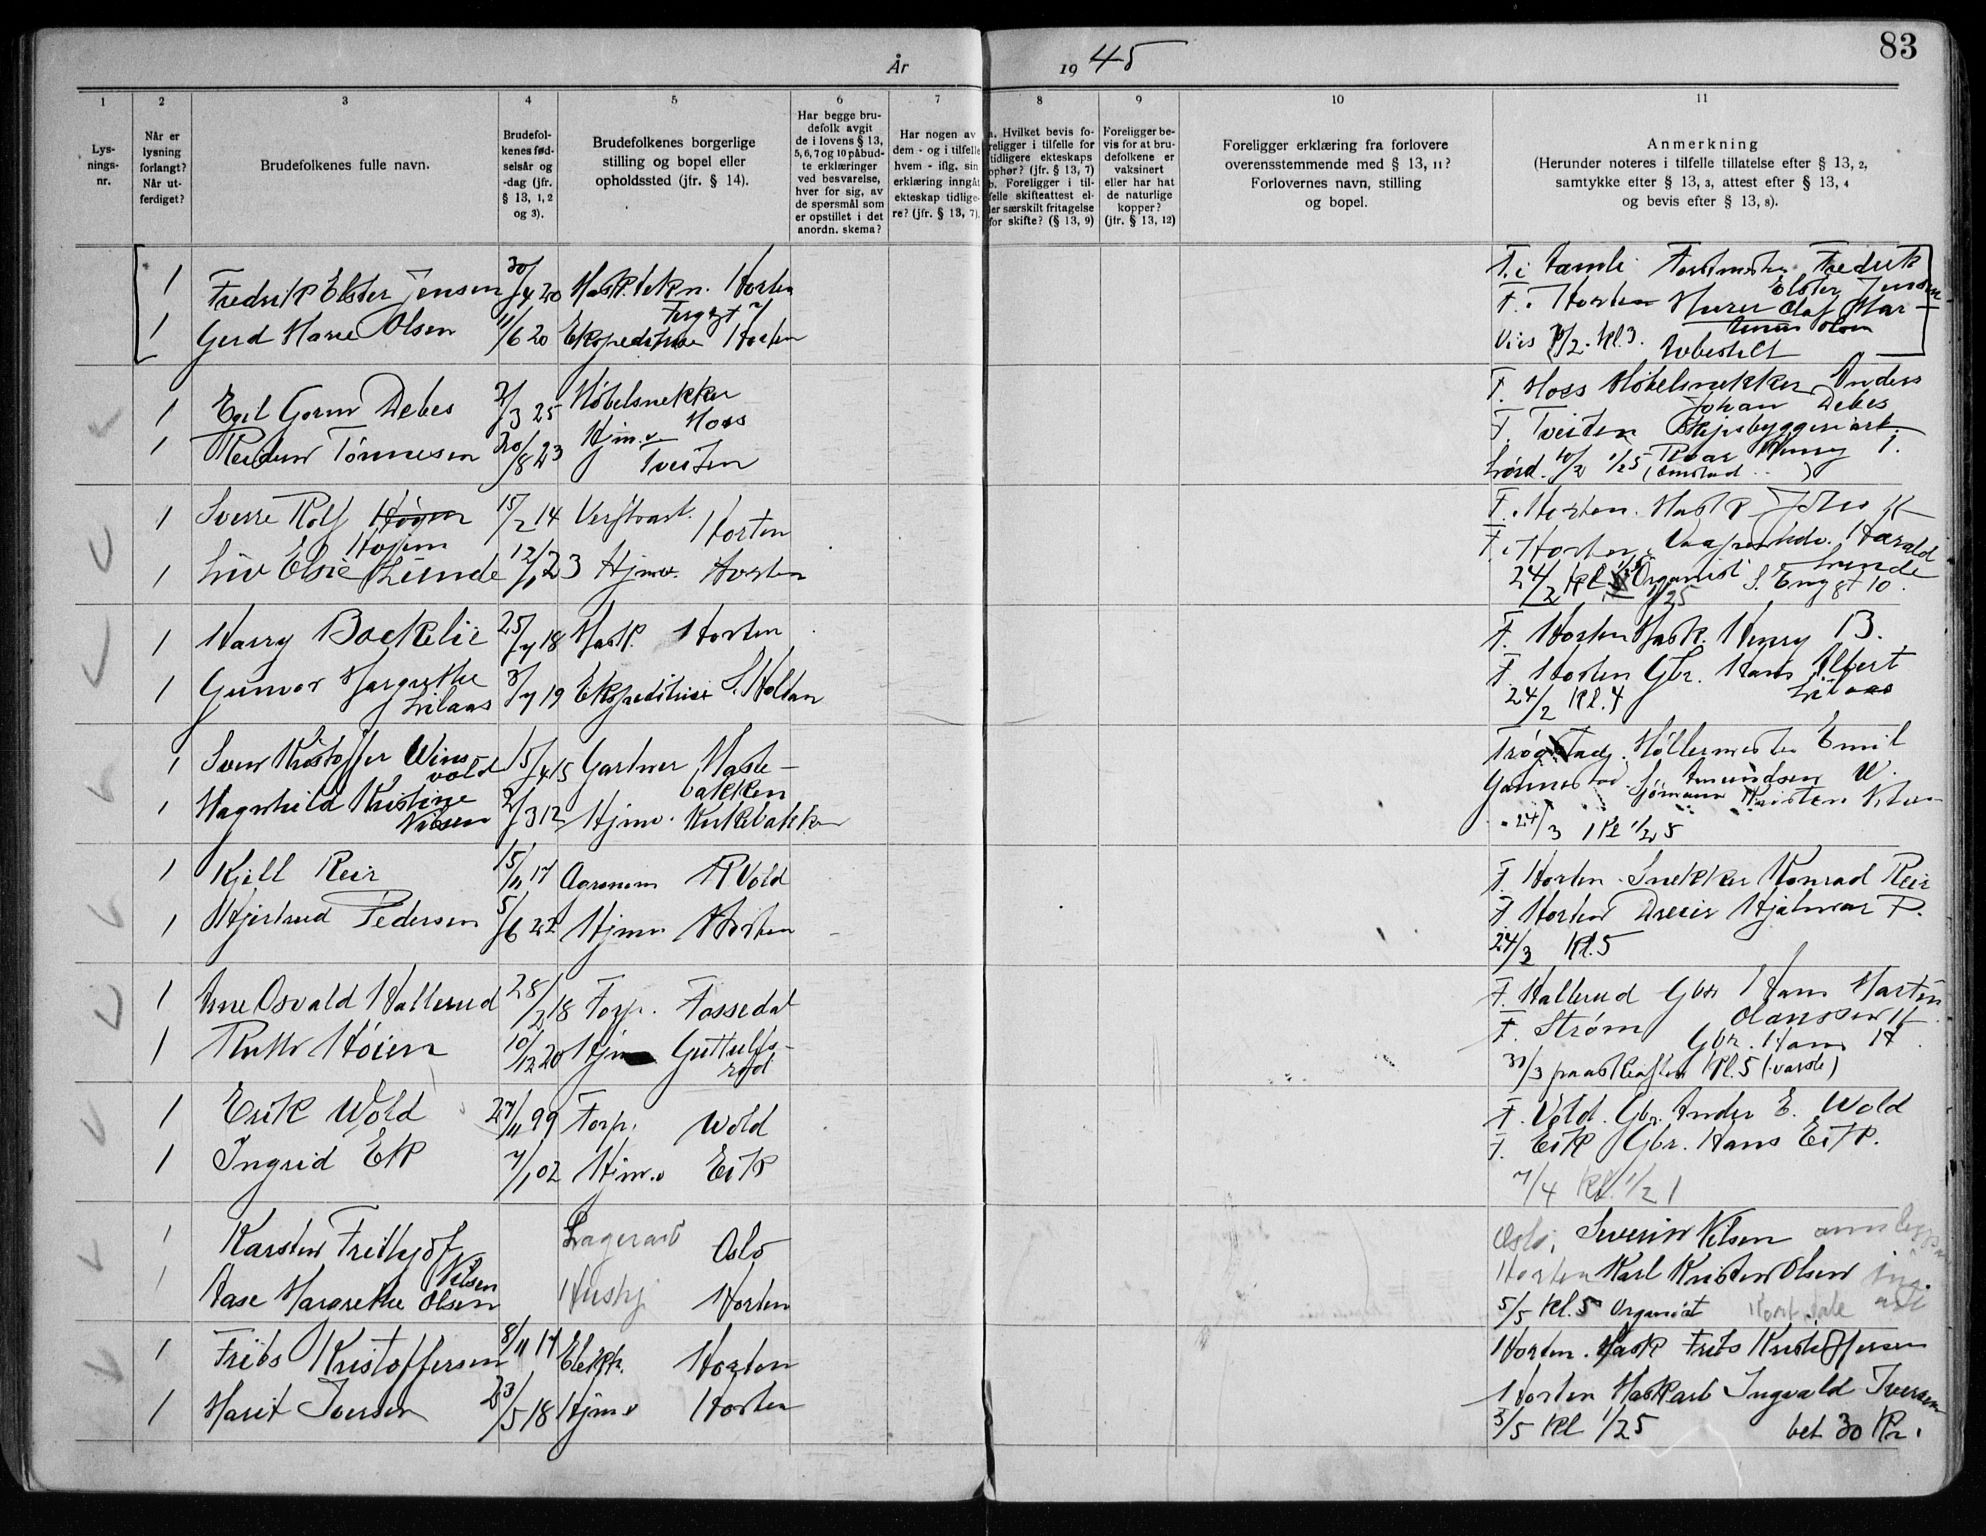 År 1945
83
1
2
3
4
5
6
7
8
9
10
11
Lys-
nings-
nr.
Når er
lysning
forlangt?
Når ut-
ferdiget?
Brudefolkenes fulle navn.
Brudefol-
kenes fød-
selsår og
-dag (jfr.
§ 13, 1, 2
og 3).
Brudefolkenes borgerlige
stilling og bopel eller
opholdssted (jfr. § 14).
Har begge bru-
defolk avgit
de i lovens § 13,
5, 6, 7 og 10 påbud-
te erklæringer
ved besvarelse,
hver for sig, av
de spørsmål som
er opstillet i det
anordn. skema?
Har nogen av
dem - og i tilfelle
hvem - iflg. sin
erklæring inngått
ekteskap tidlige-
re? (jfr. § 13, 7).
a. Hvilket bevis fo-
religger i tilfelle for
tidligere ekteskaps
ophør? (jfr. § 13, 7)
b. Foreligger i til-
felle skifteattest el-
ler særskilt fritagelse
for skifte? (§ 13, 9)
Foreligger be-
vis for at bru-
defolkene er
vaksinert
eller har hat
de naturlige
kopper?
(jfr. § 13, 12)
Foreligger erklæring fra forlovere
overensstemmende med § 13, 11?
Forlovernes navn, stilling
og bopel.
Anmerkning
(Herunder noteres i tilfelle tillatelse efter § 13, 2,
samtykke efter § 13, 3, attest efter § 13, 4
og bevis efter § 13, 8).
1 Fredrik Elster Jensen 30/4 20 Mask.tekn. Horten
F. i Fredrik
Elster Jensen
1 Gerd Marie Olsen 11/6 20 Ekspeditrise Horten
F. i Horten Murer Olaf Mar-
Olsen
Kl. 3. Avbestilt
1 Egil Gorm Debes 2/3 25 Møbelsnekker
Moss
F. Moss Møbelsnekker Anders
Johan Debes
1 Reidun Tønnesen 20/8 23 Hjmv.
Tveiten
F. Tveiten Skipsbyggeriarb.
Roar Henry T.
Lørd. 10/2 1/2 5
1 Sverre Rolf
Højem 15/2 14 Horten
F. Horten. Mask
1 Liv Elsie Lunde 12/1 23 Hjmv. Horten
F. i Horten Harald
Lunde
24/2 Kl. Organist
1 Harry Bækelie 25/7 18 Mask. Horten
F. Horten Mask. Henry B.
1 Gunvor Margrethe
Lilaas 3/7 19 Ekspeditrise S. Holtan
F. Horten Gbr. Hans Albert
Lilaas
24/2 Kl. 4
1 Svein Kristoffer Wins-
vold 15/4 15 Gartner Maste-
bakken
Trøgstad. Møllermester Emil
Amundsen W.
1 Magnhild Kristine
Nilsen 2/3 12 Hjmv. Kirkebakken
Sjømann Kristen Nilsen
24/3 Kl 1/2 5
1 Kjell Reir 15/11 17 Agronom Wold
F. Horten. Snekker Konrad Reir
1 Hjertrud Pedersen 5/6 22 Hjmv Horten
F Horten Dreier Hjalmar P.
24/3 Kl. 5
1 Arne Osvald Hallerud 28/2 18 Forp. Fossedal
F. Hallerud Gbr Hans Martin
Olanssen H
1 Ruth Høien 10/12 20 Hjm Guttulfs-
rød
F. Strøm Gbr. Hans H.
31/3 paaskeaften Kl. 5
1 Erik Wold 27/11 99 Forp. Wold
F. Wold. Gbr. Ander E. Wold
1 Ingrid Eik 7/1 02 Hjm.v Eik
F. Eik Gbr. Hans Eik.
7/4 Kl. 1/2 1
1 Karsten Frithjof
Nilsen Lagerarb Oslo
Oslo, Severin Nilsen
1 Aase Margrethe Olsen Hushj Horten
Horten Karl Kristen Olsen
5/5 Kl. 5 Organist
1 Frits Kristoffersen 8/11 17 Elektr. Horten
Horten. Mask Frits Kristoffersen
1 Marit Iversen 23/5 18 Hjmv Horten
Horten Maskarb Ingvald Iversen
3/5 Kl 1/2 5 bet 30 Kr.